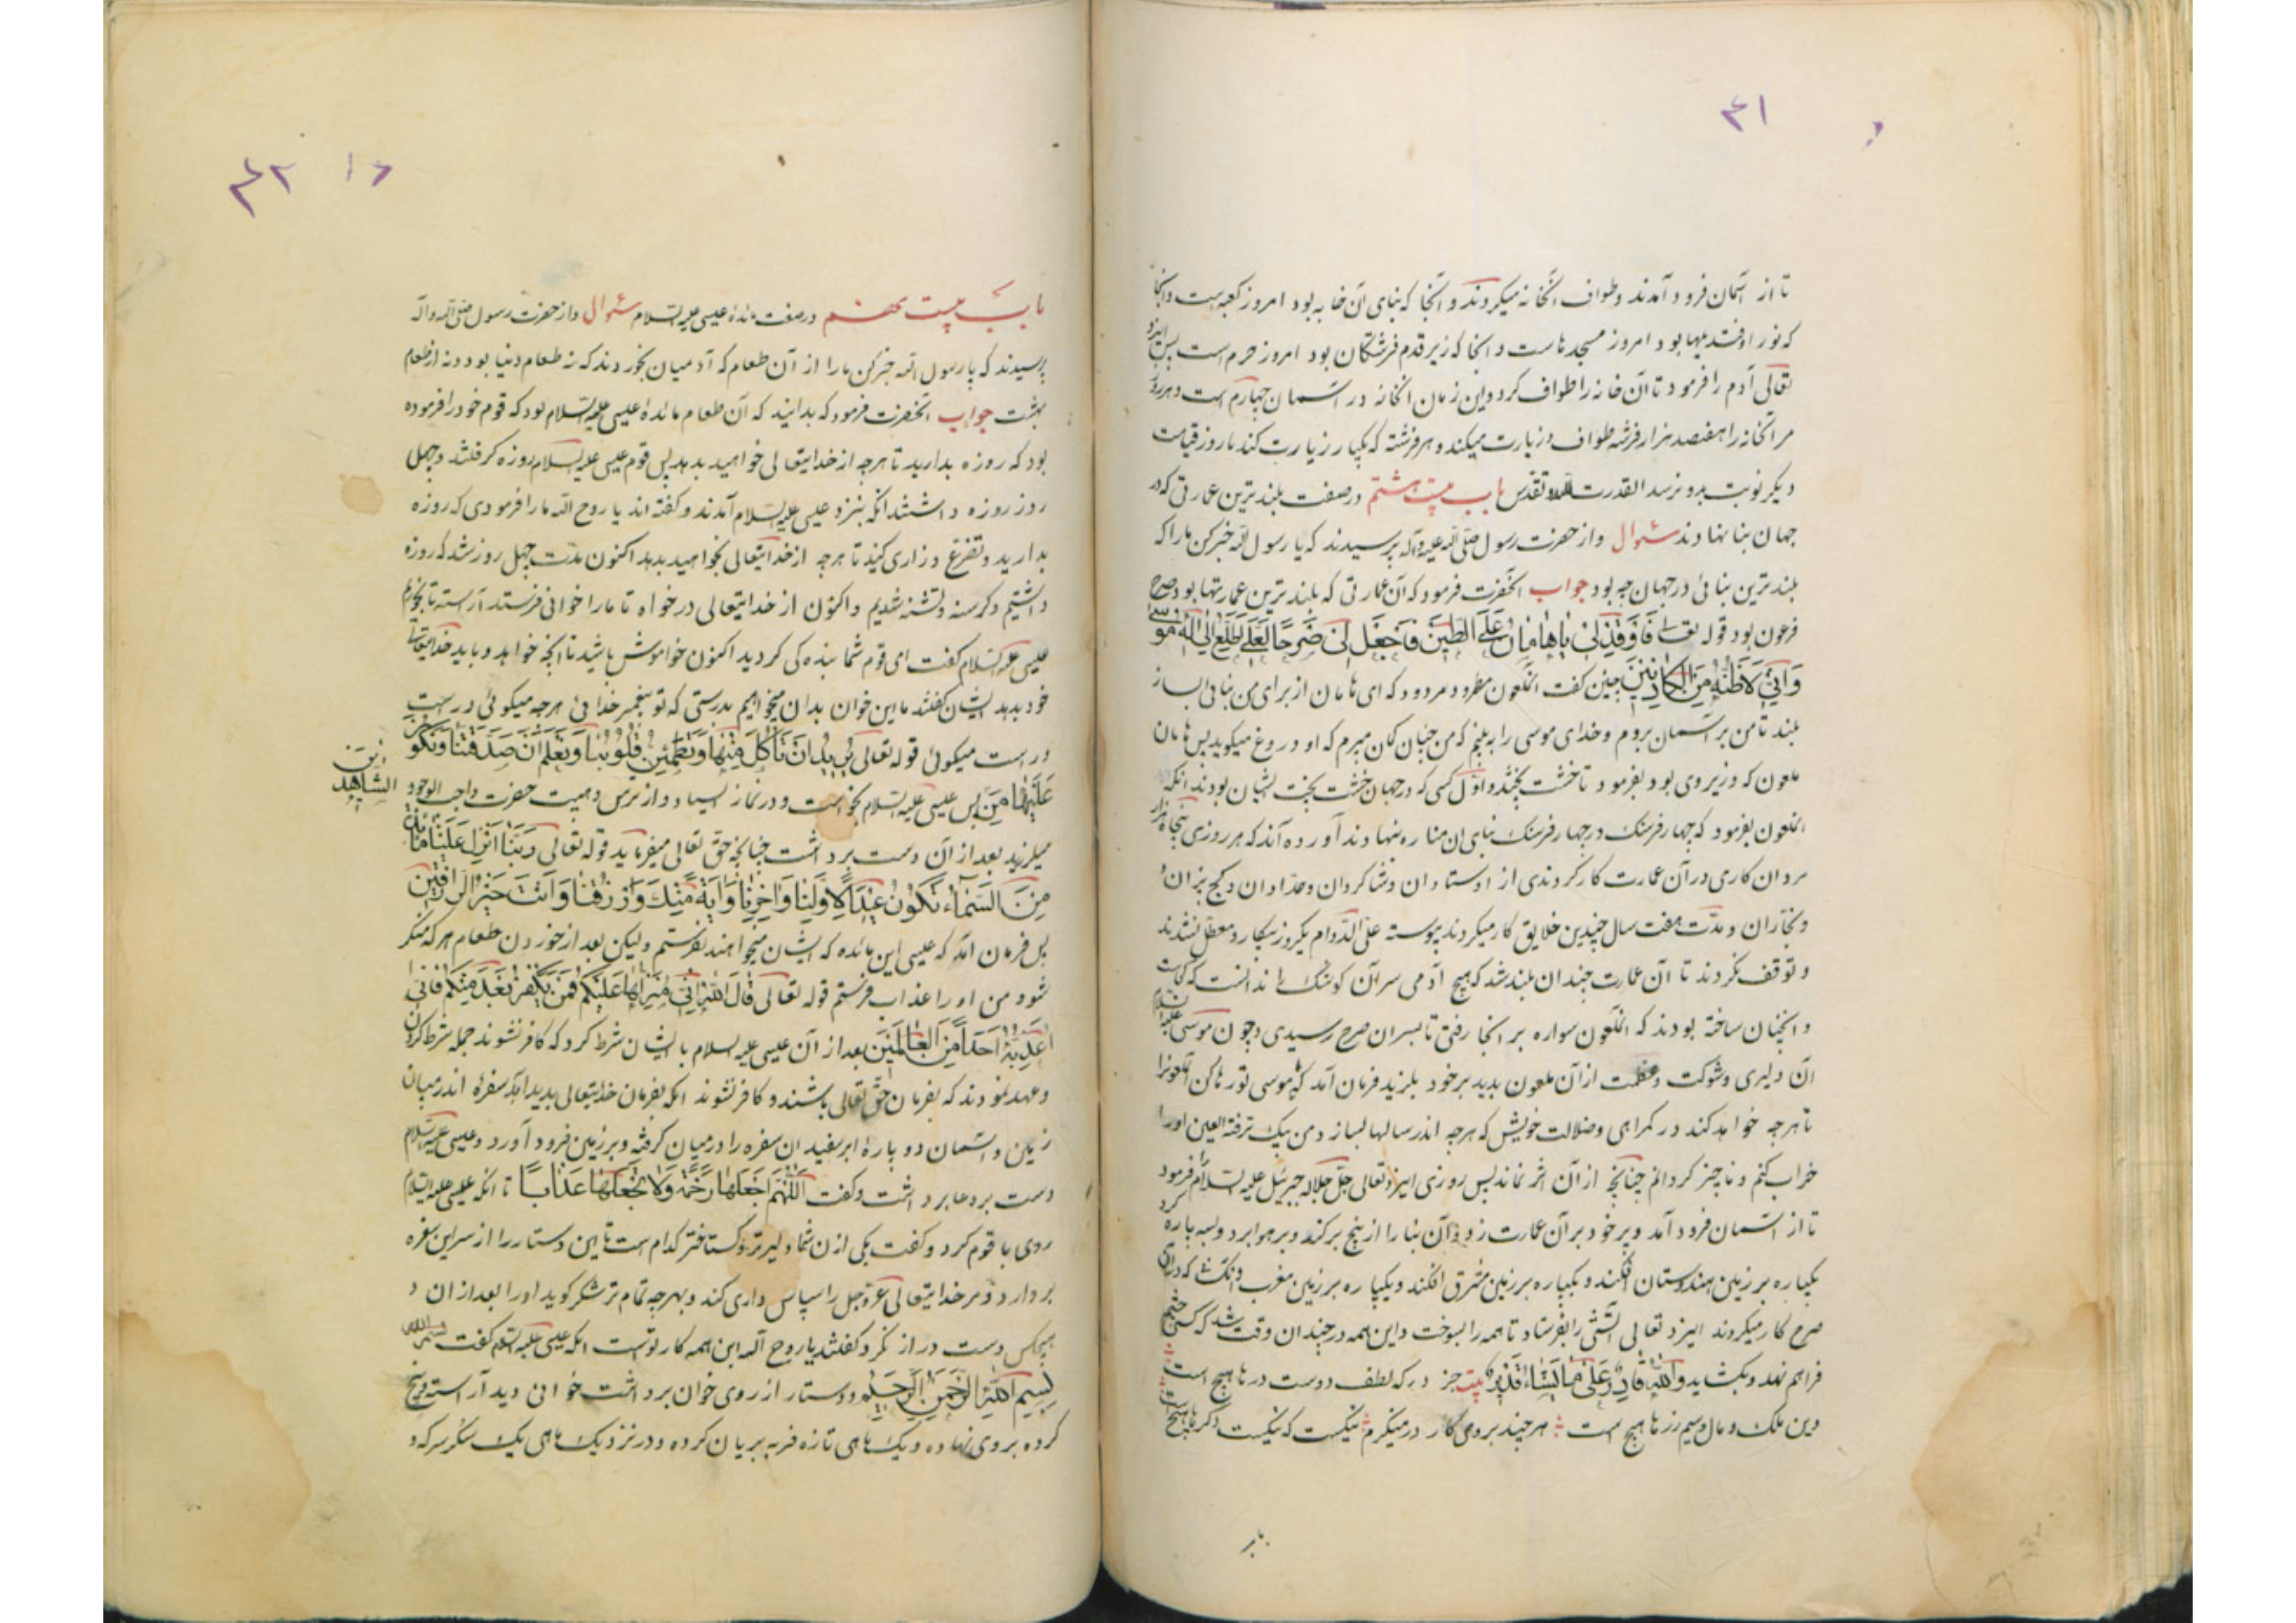 ۴۱
تا از آسمان فرود آمدند و طواف آنخانه میکردند و آنجا که بنای آن خانه بود امروز کعبه است و آنجا
که نور او فتد بیها بود امروز مسجدهاست و آنجا که زیر قدم فرشتگان بود امروز حرم است پس ایزد
تعالی آدم را فرمود تا آن خانه را طواف کرد و این زمان آنخانه در آسمان چهارم است و هر روز
مر آنخانه را هفتصد هزار فرشته طواف و زیارت میکنند و هر فرشته که یکبار زیارت کند تا روز قیامت
دیگر نوبت بدو نرسد القدرت لله تقدس باب بیست هشتم در صفت بلندترین عمارتی که در
جهان بنا نهادند سئوال و از حضرت رسول صلی الله علیه وآله پرسیدند که یا رسول الله خبر کن ما را که
بلندترین بنائی در جهان چه بود جواب آنحضرت فرمود که آن عمارتی که بلندترین عمارتها بود صرح
فرعون بود قوله تعالی فَاَوْقِدْ لِی یَاهَامَانُ عَلَی الطِّینِ فَاجْعَلْ لِی صَرْحًا لَعَلِّی اَطَّلِعُ اِلٰی اِلٰهِ مُوسٰی
وَاِنِّی لَاَظُنُّهُ مِنَ الْکَاذِبِینَ چنین گفت آنملعون مطرود مردود که ای هامان از برای من بنائی بساز
بلند تا من بر آسمان بروم و خدای موسی را به بینم که من چنان گمان میبرم که او دروغ میگوید پس هامان
ملعون که وزیر وی بود بفرمود تا خشت پختند و اول کسی که در جهان خشت پخت ایشان بودند آنگه
آنملعون بفرمود که چهار فرسنک در چهار فرسنک بنای آن مناره نهادند آورده آند که هر روزی پنجاه هزار
مردان کاری در آن عمارت کار کردندی از اوستادان و شاکردان و حدادان و کچ بزان
و نجاران و مدت هفت سال چندین خلایق کار میکردند پیوسته علی الدوام یکروز بیکار و معطل نشدند
و توقف نکردند تا آن عمارت چندان بلند شد که هیچ آدمی سر آن کوشک را ندانست که کجاست
و آنچنان ساخته بودند که آنملعون سواره بر آنجا رفتی تا بسران صرح رسیدی و چون موسی علیه السلام
آن دلیری و شوکت و عظمت از آن ملعون بدید بر خود بلرزید فرمان آمد که یا موسی تو رها کن آنملعونرا
تا هرچه خواهد کند در کمراهی و ضلالت خویش که هرچه اندر سالها بسازد من بیک ترفة العین اورا
خراب کنم و ناچیز کردانم چنانچه از آن اثر نماند پس روزی ایزد تعالی جل جلاله جبرئیل علیه السلام فرمود
تا از آسمان فرود آمد و پر خود بر آن عمارت زد و آن بنا را از بیخ برکند و بر هوا برد و سه پاره کرد
یکپاره بر زمین هندوستان افکند و یکپاره بر زمین مشرق افکند و یکپاره بر زمین مغرب و آنکسانی که در آن
صرح کار میکردند ایزد تعالی آتشی را بفرستاد تا همه را بسوخت و این همه در چندان وقت شد که کسی چشم
فراهم نهد و بکشاید وَاللهُ قَادِرٌ عَلٰی مَا یَشَاءُ قَدِیرٌ بیت جز در که لطف دوست درها هیچ است
وین ملک و مال و سیم و زرها هیچ است هر چند بروی کار در مینگرم نیکیست که نیکیست دگرها هیچ است
۴۲
باب بیست نهم در صفت مائدۀ عیسی علیه السلام سئوال و از حضرت رسول صلی الله وآله
پرسیدند که یا رسول الله خبر کن ما را از آن طعام که آدمیان بخوردند که نه طعام دنیا بود و نه از طعام
بهشت جواب آنحضرت فرمود که بدانید که آن طعام مائدۀ عیسی علیه السلام بود که قوم خود را فرموده
بود که روزه بدارید تا هرچه از خدایتعالی خواهید بدهد پس قوم عیسی علیه السلام روزه گرفتند و چهل
روز روزه داشتند آنکه بنزد عیسی علیه السلام آمدند و گفته اند یا روح الله ما را فرمودی که روزه
بدارید و تضرع و زاری کنید تا هرچه از خدایتعالی بخواهید بدهد اکنون مدت چهل روز شد که روزه
داشتیم و گرسنه و تشنه شدیم و اکنون از خدایتعالی درخواه تا ما را خوانی فرستد آراسته تا بخوریم
عیسی علیه السلام گفت ای قوم شما بنده کی کردید اکنون خواموش باشید تا آنچه خواهد و باید خدایتعالی
خود بدهد ایشان گفتند ما این خوان بدان میخواهیم بدرستی که تو پیغمبر خدائی هرچه میگوئی در است
و راست میگوئی قوله تعالی نُرِیدُ اَنْ نَأْکُلَ مِنْهَا وَتَطْمَئِنَّ قُلُوبُنَا وَنَعْلَمَ اَنْ صَدَقْتَنَا وَنَکُونَ
عَلَیْهَا مِنَ الشَّاهِدِینَ پس عیسی علیه السلام بخواست و در نماز ایستاد و از ترس و هیبت حضرت واجب الوجود
میلرزید بعد از آن دست برداشت چنانچه حق تعالی میفرماید قوله تعالی رَبَّنَا اَنْزِلْ عَلَیْنَا مَائِدَةً
مِنَ السَّمَاءِ تَکُونُ عِیدًا لِاَوَّلِنَا وَآخِرِنَا وَآیَةً مِنْکَ وَارْزُقْنَا وَاَنْتَ خَیْرُ الرَّازِقِینَ
پس فرمان آمد که عیسی این مائده که ایشان میخواهند بفرستم ولیکن بعد از خوردن طعام هر که منکر
شود من او را عذاب فرستم قوله تعالی قَالَ اللهُ اِنِّی مُنَزِّلُهَا عَلَیْکُمْ فَمَنْ یَکْفُرْ بَعْدُ مِنْکُمْ فَاِنِّی
اُعَذِّبُهُ اَحَدًا مِنَ الْعَالَمِینَ بعد از آن عیسی علیه السلام با ایشان شرط کرد که کافر نشوند جمله شرط کردن
و عهد نمودند که بفرمان حق تعالی باشند و کافر نشوند آنکه بفرمان خدایتعالی پدید آمد سفرۀ اندر میان
زمین و آسمان دو پارۀ ابر سفید ان سفره را در میان گرفته و بر زمین فرود آورد و عیسی علیه السلام
دست بر دعا برداشت و گفت اَللّٰهُمَّ اجْعَلْهَا رَحْمَةً وَلَا تَجْعَلْهَا عَذَابًا تا آنکه عیسی علیه السلام
روی با قوم کرد و گفت یکی از ن شما دلیرتر و گستاختر کدام است تا این دستار را از سر این سفره
بردارد و مر خدایتعالی عزوجل را سپاس داری کند و بهرچه تمام تر شکر گوید او را بعد از ان
هیچکس دست دراز نکرد گفتند یا روح الله این همه کار توست آنکه عیسی علیه السلام گفت بسم الله
بِسْمِ اللهِ الرَّحْمٰنِ الرَّحِیمِ و دستار از روی خوان برداشت خوانی دید آراسته و پنج
کرده بروی نهاده و یک ماهی تازه فربه بریان کرده و در نزدیک ماهی یک سکر سرکه و